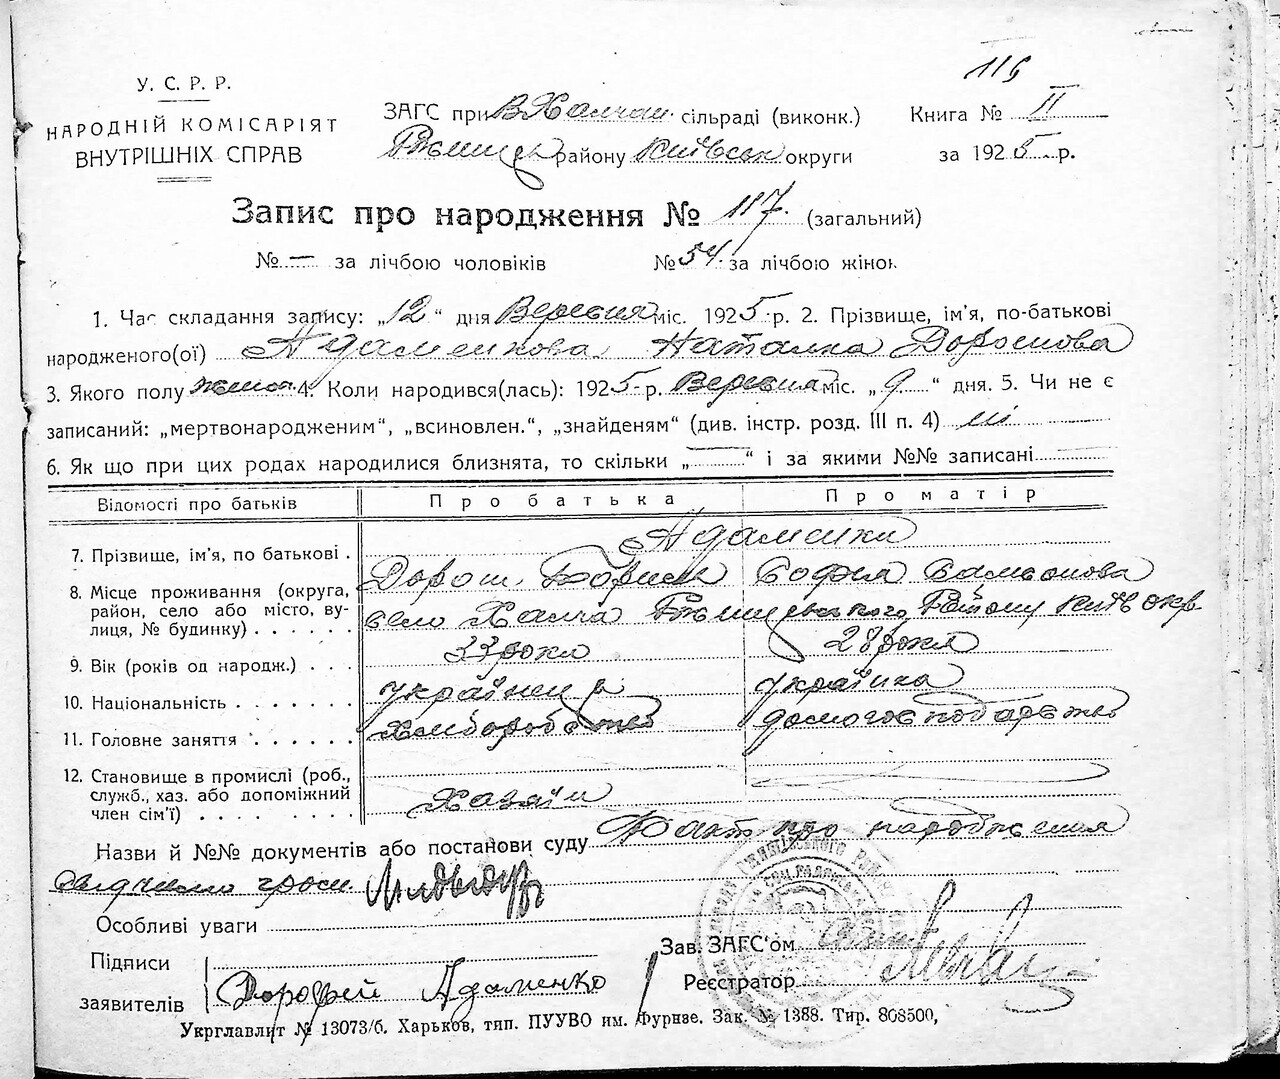 116
У. С. Р. Р.
НАРОДНІЙ КОМІСАРІЯТ
ВНУТРІШНІХ СПРАВ
ЗАГС при В Халчан. сільраді (виконк.)
району Київськ округи
Книга № II
за 1925 р.
Запис про народження № 117. (загальний)
№ — за лічбою чоловіків
№ 54. за лічбою жінок
1. Час складання запису: „12“ дня Вересня міс. 1925 р. 2. Прізвище, ім'я, по-батькові
народженого(ої) Адаменкова Наталка Доросиова
3. Якого полу жіноч. 4. Коли народився(лась): 1925 р. Вересня міс. „9“ дня. 5. Чи не є
записаний: „мертвонародженим“, „всиновлен.“, „знайденям“ (див. інстр. розд. III п. 4) ні
6. Як що при цих родах народилися близнята, то скільки „—“ і за якими №№ записані
Відомості про батьків
Про батька
Про матір
7. Прізвище, ім'я, по батькові .
Адаменки
Дорош. Борисов Софія Самсонова
8. Місце проживання (округа,
район, село або місто, ву-
лиця, № будинку) . . . . . .
село Халча Ржищівського Району Київ окр
9. Вік (років од народж.) . . .
33 роки
28 роки
10. Національність . . . . . . .
українець
українка
11. Головне заняття . . . . . .
Хліборобство
домогосподарство
12. Становище в промислі (роб.,
служб., хаз. або допоміжний
член сім'ї) . . . . . . . .
Хазяїн
Назви й №№ документів або постанови суду Факт про народження
свідчено гром.
Особливі уваги
Підписи
заявителів
Дорофій Адаменко
Зав. ЗАГС'ом
Реєстратор
Укрглавліт № 13073/б. Харьков, тип. ПУУВО им. Фрунзе. Зак. № 1388. Тир. 808500,